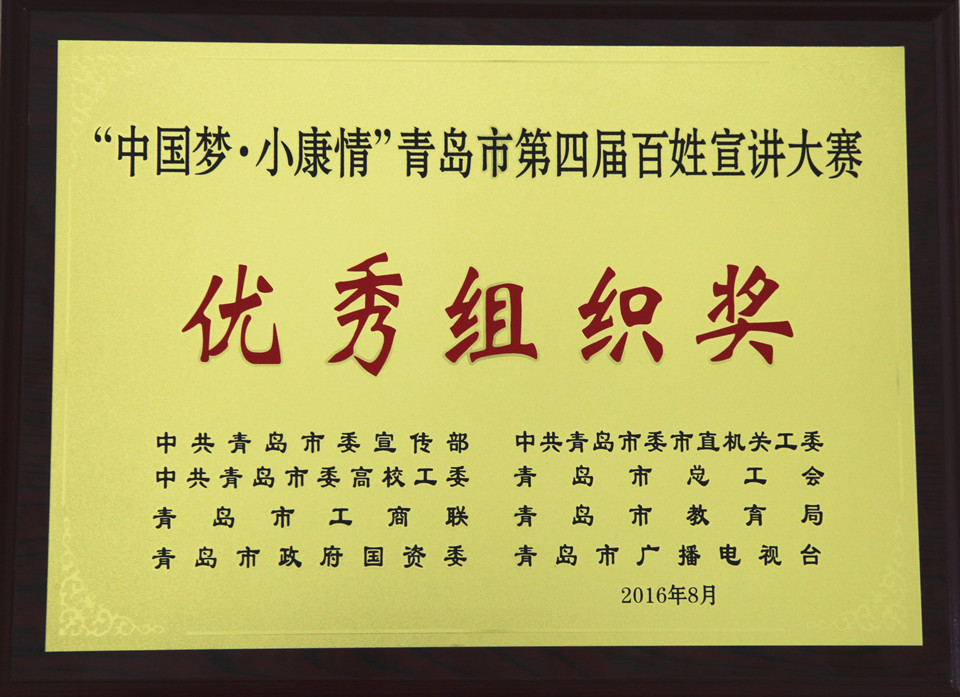 “中国梦·小康情”青岛市第四届百姓宣讲大赛
优秀组织奖
中共青岛市委宣传部 中共青岛市委市直机关工委
中共青岛市委高校工委 青岛市总工会
青岛市工商联 青岛市教育局
青岛市政府国资委 青岛市广播电视台
2016年8月